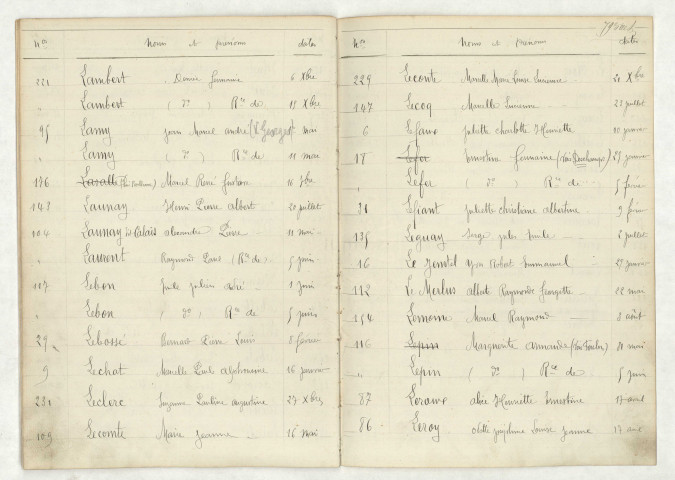 Nos Noms et prénoms dates
221 Lambert Denise Germaine 6 Xbre
" Lambert ( do ) Rce de 11 Xbre
95 Lamy Jean Marcel André mai
" Lamy ( do ) Rce de 11 mai
176 Marcel René Gustave 16 7bre
143 Launay Henri Pierre Albert 20 juillet
104 Launay dit Calais Alexandre Pierre 11 mai
" Laurent Raymond Paul (Rce de) 5 juin
117 Lebon Jules Julien 1 juin
" Lebon ( do ) Rce de 5 juin
29 Lebossé Bernard Pierre Louis 8 février
9 Lechat Marcelle Paule Alphonsine 16 janvier
231 Leclerc Suzanne Pauline Augustine 27 Xbre
109 Lecomte Marie Jeanne 16 mai
Nos Noms et prénoms dates
229 Leconte Marcelle Marie Louise 21 Xbre
147 Lecoq Marcelle Suzanne 22 juillet
6 Juliette Charlotte Henriette 10 janvier
18 Lefer Ernestine Germaine 29 janvier
" Lefer ( do ) Rce de 5 février
31 Juliette Christiane Albertine 9 février
135 Leguay Serge Jules 6 juillet
16 Le Gentil Yvon Robert Emmanuel 27 janvier
112 Le Merlus Raymonde Georgette 22 mai
154 Lemoine Marcel Raymond 8 août
116 Lepin Marguerite Armande 31 mai
" Lepin ( do ) Rce de 5 juin
87 Lerawe Alice Henriette Ernestine 17 avril
86 Leroy Odette Joséphine Louise Jeanne 17 avril